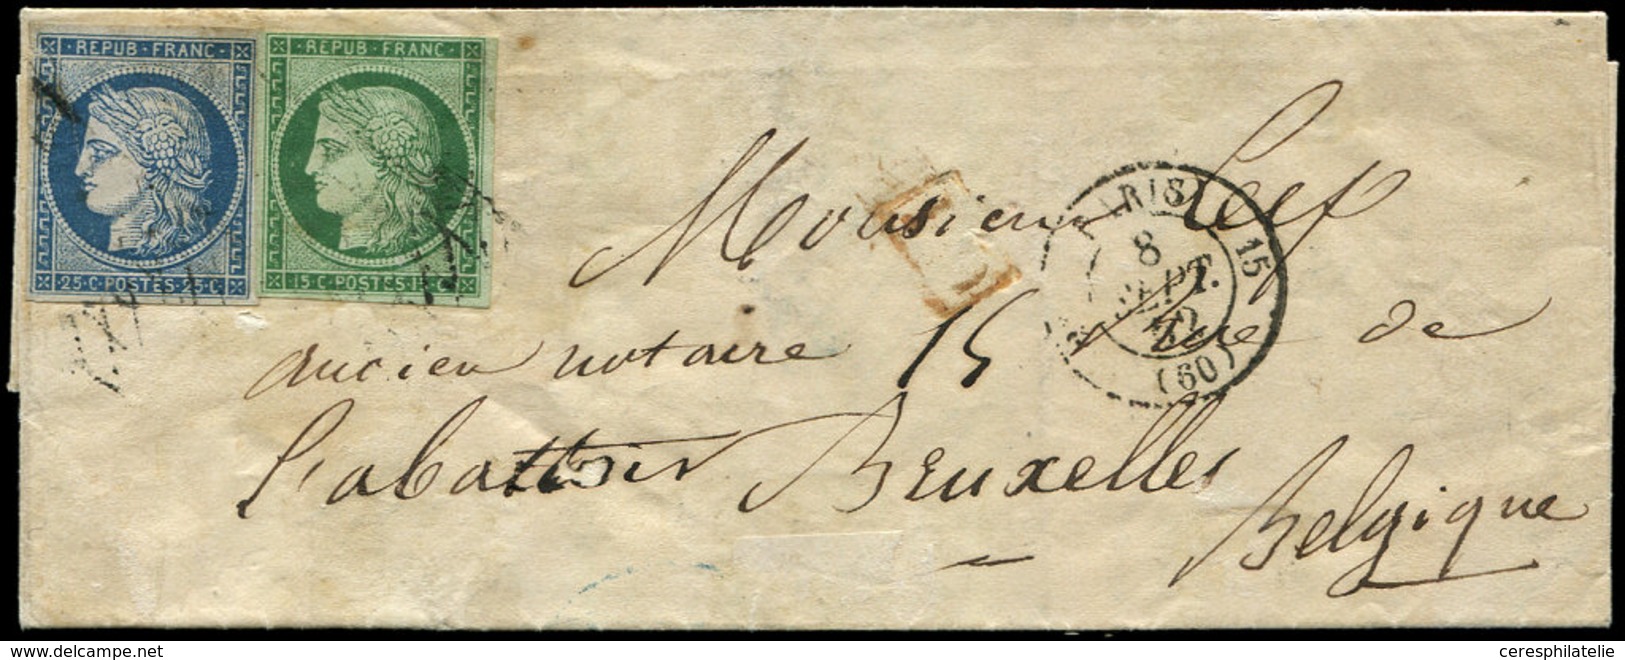 REPUB·FRANC·
25·C·POSTES·25·C
REPUB·FRANC·
15·C·POSTES·15
Monsieur
PARIS
15
8
SEPT.
52
(60)
ancien notaire 15 Rue de
l'abattoir Bruxelles
Belgique
delcampe.net
ceresphilatelie